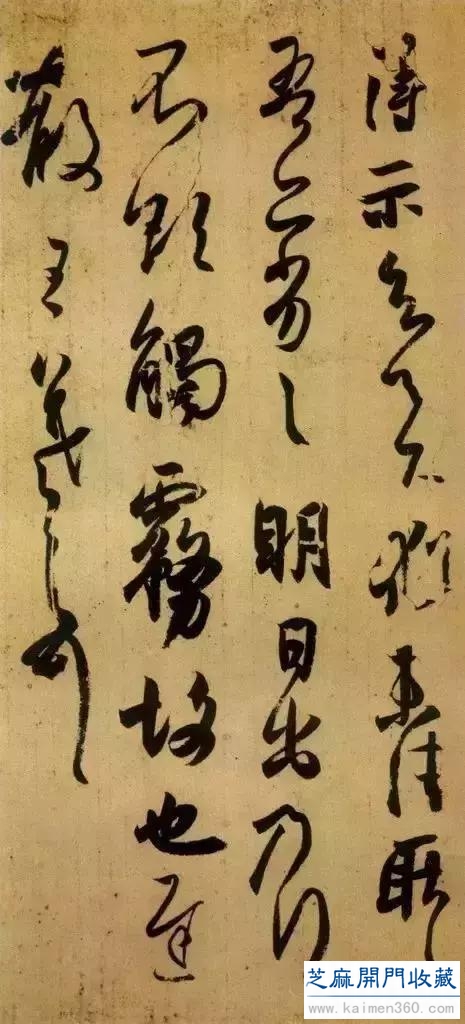 得示知足下猶未佳耿々
吾亦劣々明日出乃行
不欲觸霧故也遲
散王羲之頓首
芝麻開門收藏
www.kaimen360.com